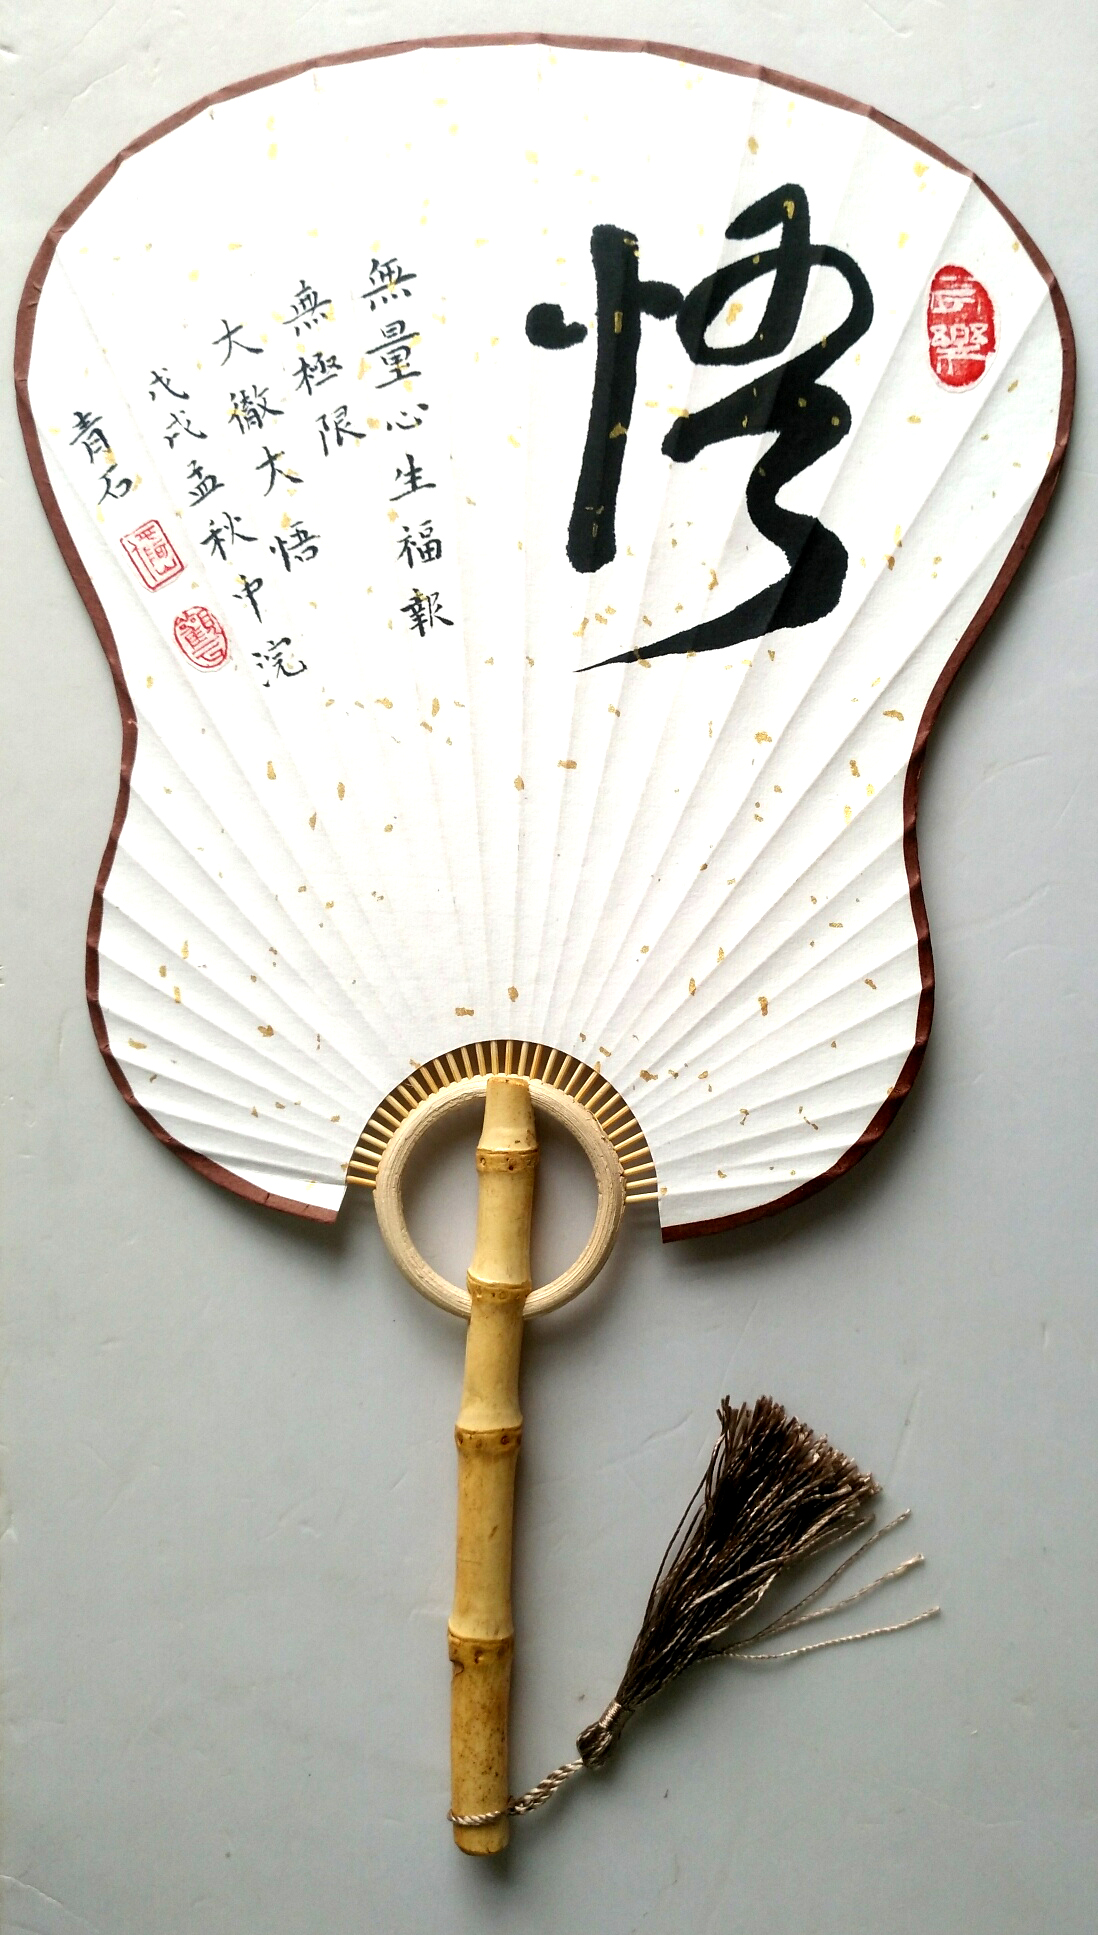 悟
無量心生福報
無極限
大徹大悟
戊戌孟秋中浣
青石